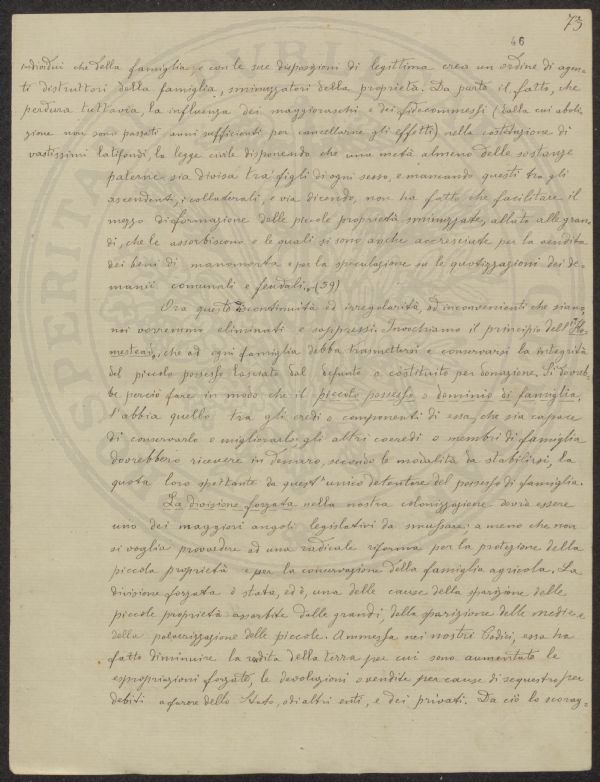 73
46
individui che della famiglia, e con le sue disposizioni di legittima crea un ordine di agen-
ti distruttori della famiglia, sminuzzatori della proprietà. Da parte il fatto, che
perdura tuttavia, la influenza dei maggioraschi e dei fidecommessi (dalla cui aboli-
zione non sono passati anni sufficienti per cancellarne gli effetti) nella costituzione di
vastissimi latifondi, la legge civile disponendo che una metà almeno delle sostanze
paterne sia divisa tra' figli di ogni sesso, e mancando questi tra gli
ascendenti, i collaterali, e via dicendo, non ha fatto che facilitare il
mezzo di formazione delle piccole proprietà sminuzzate, allato alle gran-
di, che le assorbiscono e le quali si sono anche accresciute per la vendita
dei beni di manomorta e per la speculazione su le quotizzazioni dei de-
manii comunali e feudali. (39)
Ora queste discontinuità ed irregolarità, ed inconvenienti che siano,
noi vorremmo eliminati e soppressi. Invochiamo il principio dell'Ho-
mestead, che ad ogni famiglia debba trasmettersi e conservarsi la integrità
del piccolo possesso lasciato dal defunto o costituito per donazione. Si dovreb-
be perciò fare in modo che il piccolo possesso o dominio di famiglia,
l'abbia quello tra gli eredi o componenti di essa, che sia capace
di conservarlo e migliorarlo: gli altri coeredi o membri di famiglia
dovrebbero ricevere in denaro, secondo le modalità da stabilirsi, la
quota loro spettante da quest'unico detentore del possesso di famiglia.
La divisione forzata nella nostra colonizzazione dovrà essere
uno dei maggiori angoli legislativi da smussare: a meno che non
si voglia provvedere ad una radicale riforma per la protezione della
piccola proprietà e per la conservazione della famiglia agricola. La
divisione forzata è stata, ed è, una delle cause della sparizione delle
piccole proprietà assorbite dalle grandi, della sparizione delle medie, e
della polverizzazione delle piccole. Ammessa nei nostri Codici, essa ha
fatto diminuire la rendita della terra per cui sono aumentate le
espropriazioni forzate, le devoluzioni o vendite per cause di sequestro per
debiti a favore dello Stato, o di altri enti, e dei privati. Da ciò lo scorag-